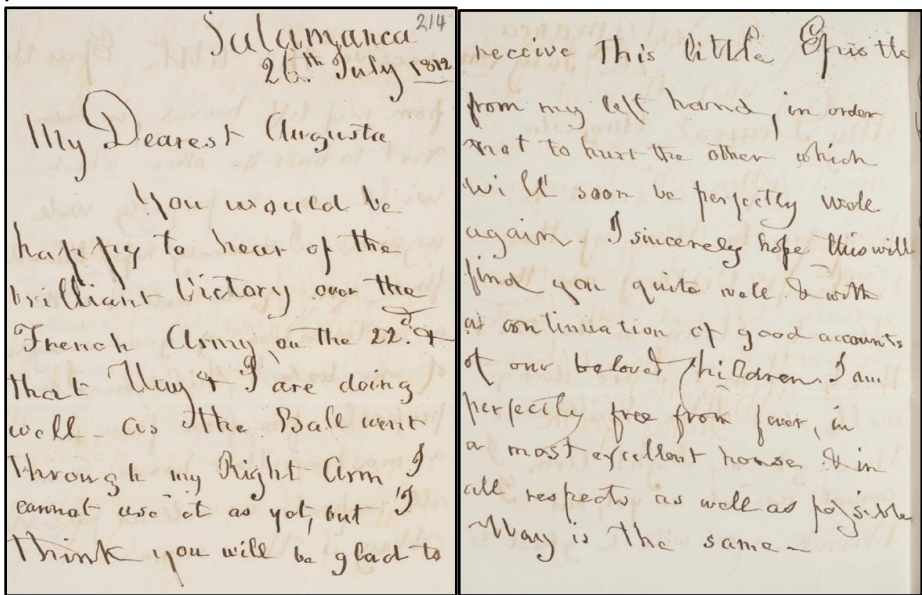 214
Salamanca
26th July 1812
My Dearest Augusta
You would be
happy to hear of the
brilliant Victory over the
French Army on the 22d. &
that Way & I are doing
well - as the Ball went
through my Right Arm I
cannot use it as yet, but I
think you will be glad to
receive this little Epistle
from my left hand, in order
not to hurt the other which
will soon be perfectly well
again. I sincerely hope this will
find you quite well & with
a continuation of good accounts
of our beloved Children. I am
perfectly free from fever, in
a most excellent house, & in
all respects as well as possible
Way is the same -